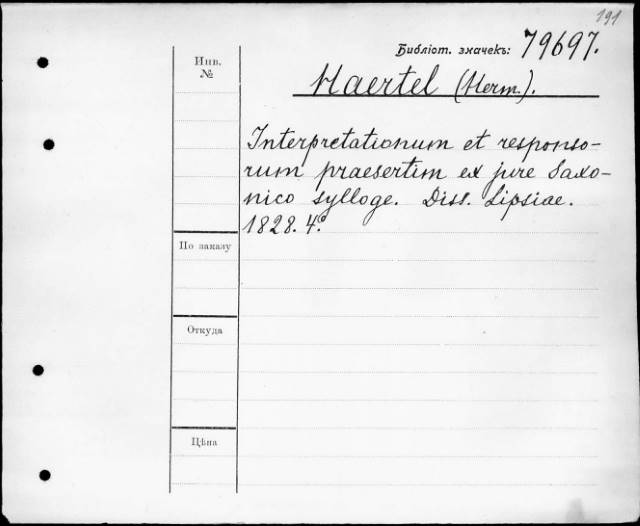 191
Библіот. значекъ: 79697.
Haertel (Herm.).
Инв.
№
Interpretationum et responso-
rum praesertim ex jure Saxo-
nico sylloge. Diss. Lipsiae.
1828. 4º
По заказу
Откуда
Цѣна